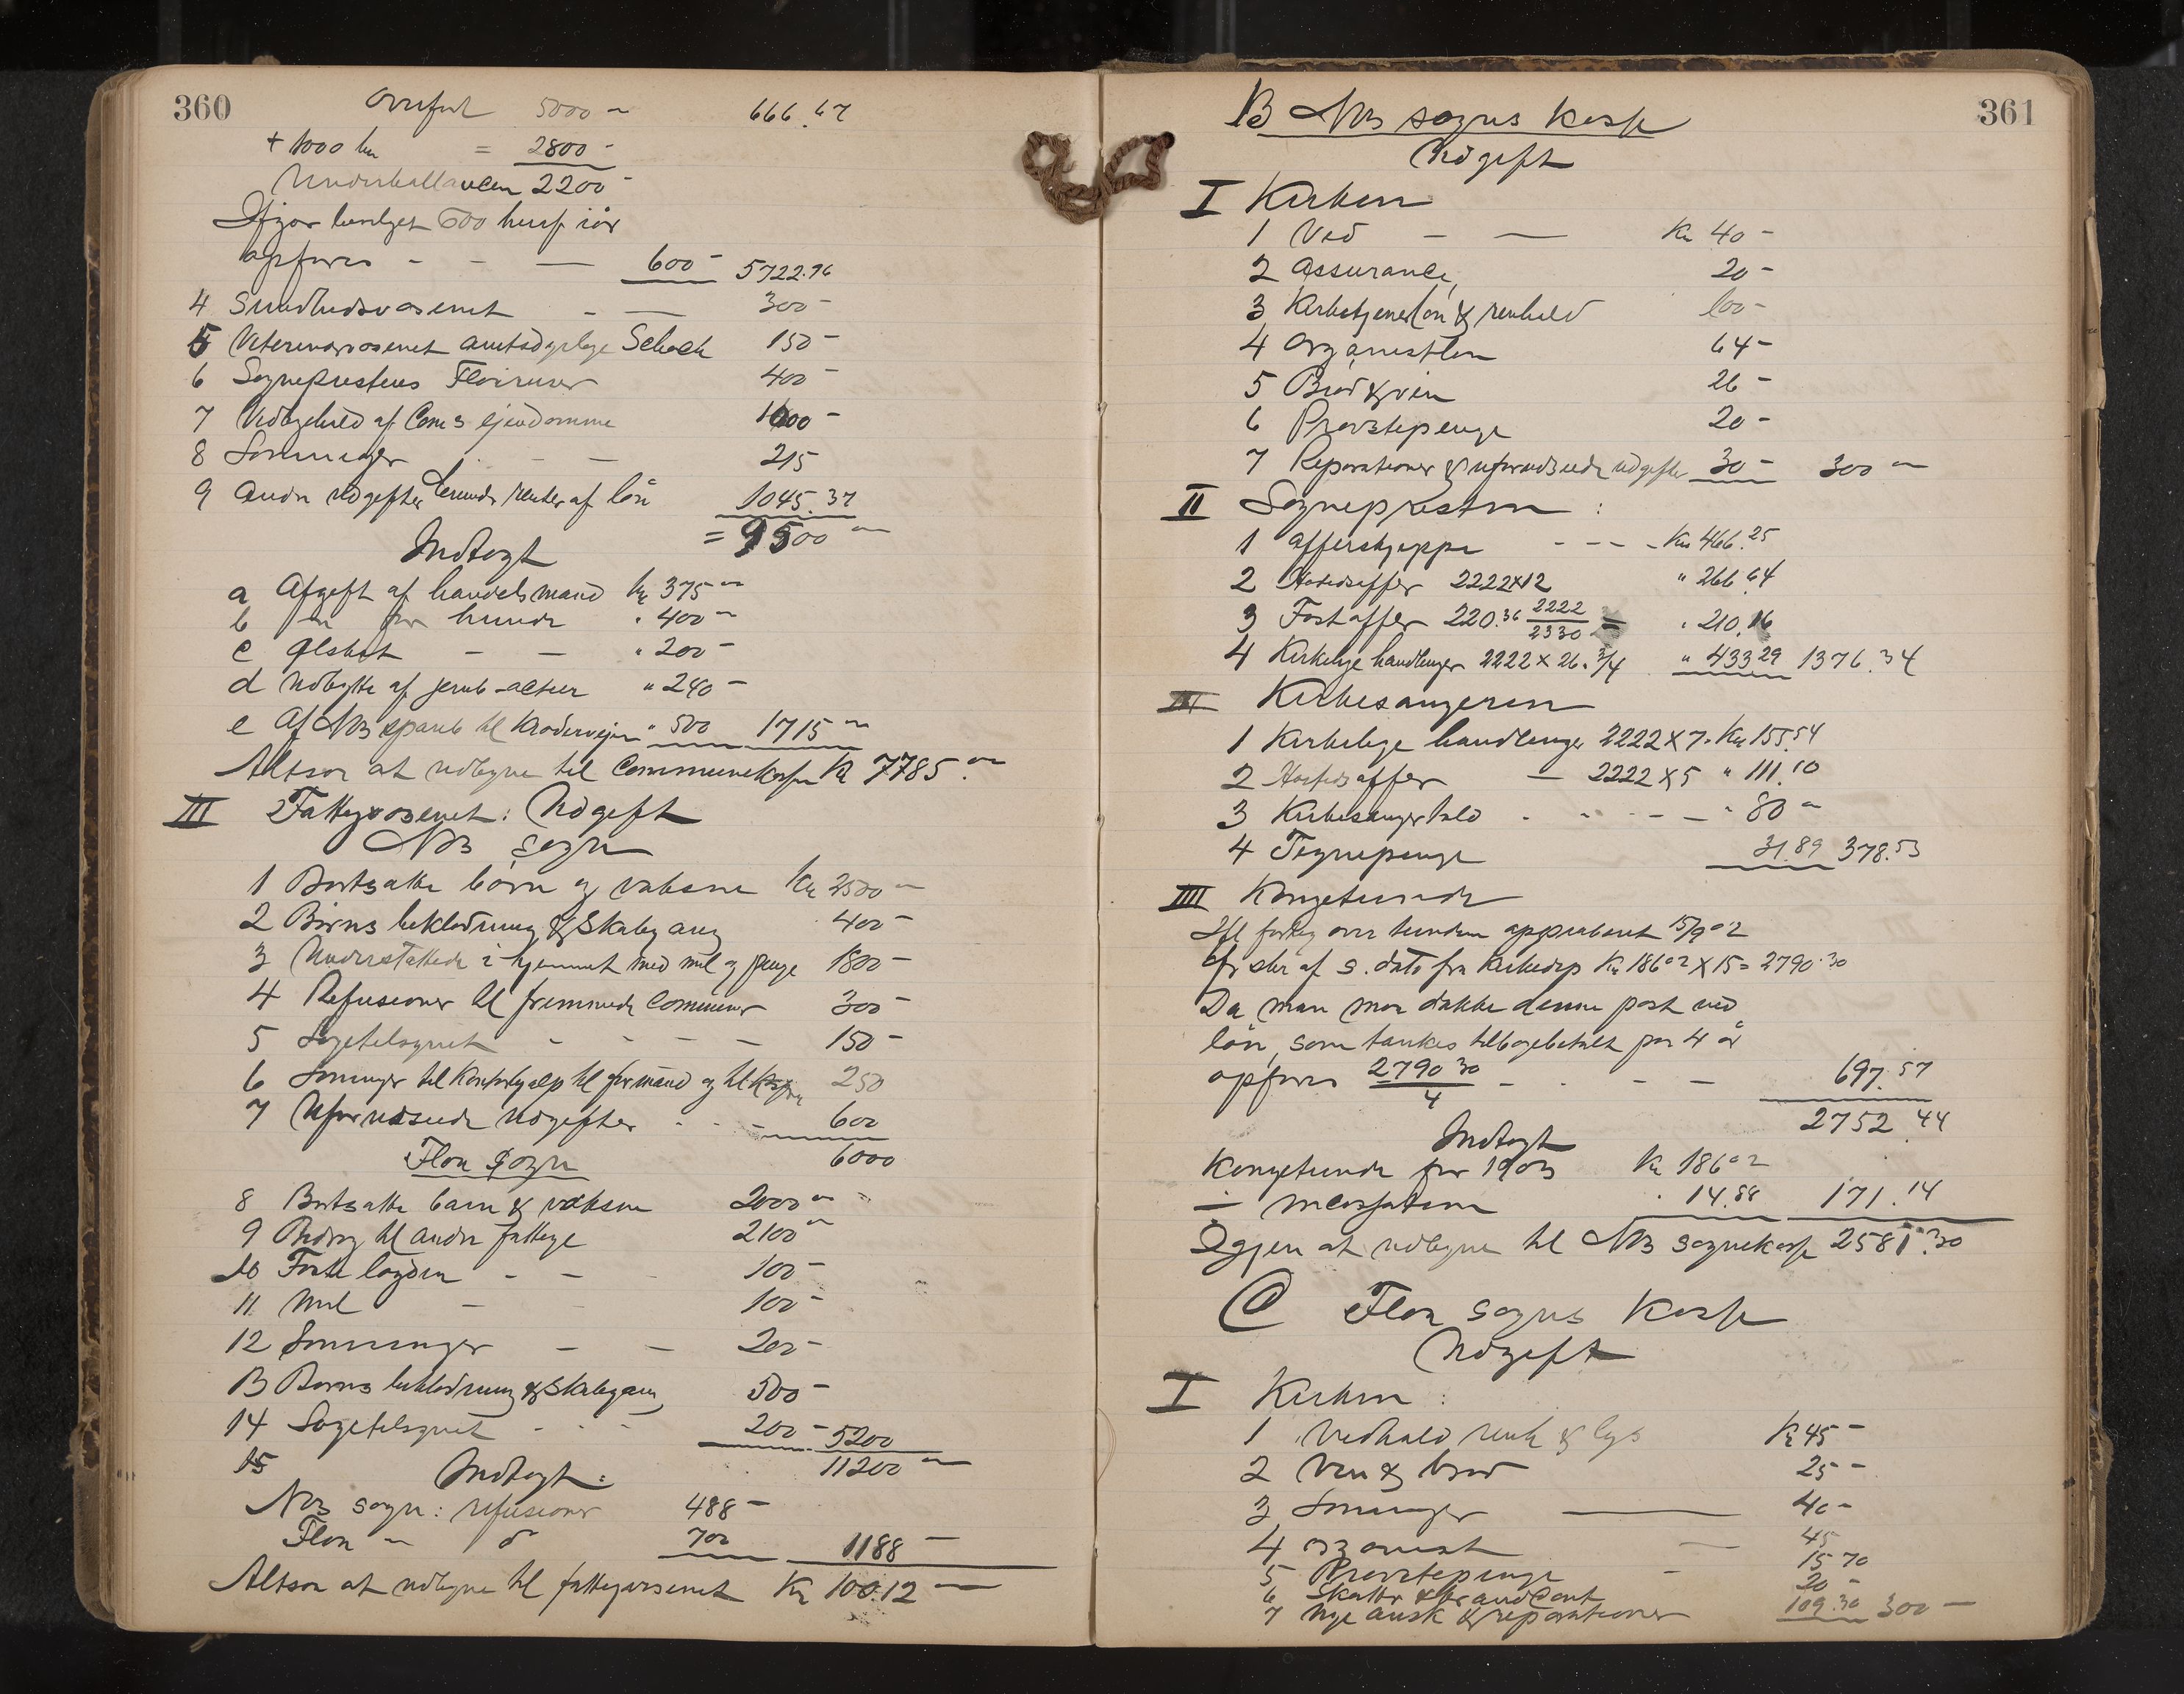 360
Overført 5000 — 666.67
+ 1000 km = 2800 -
Underballancen 2200 -
Ifjor bevilget 600 hvorf iår
opføres - - — 600 - 5722.96
4 Sundhedsvæsenet - — 300 -
5 Veterinærvæsenet amtsdyrlæge Schock 150 -
6 Sogneprestens 400 -
7 Vedligehold af Coms ejendomme 1000 -
8 Lønninger - — 215
9 Andre udgifter herunder renter af lån 1045.37
= 9500 —
Indtægt
a Afgift af handelsmænd Kr 375 —
b for hunde " 400 —
c — — " 200 -
d Udbytte af jernb-actier " 240 -
e Af Næs spareb til Krødervejen " 500 1715 —
Altsaa at udligne til Communekassen Kr 7785.—
III Fattigvæsenet: Udgift
Næs sogn
1 Bortsatte børn og voksne Kr 2500 —
2 Børns beklædning & skolegang 400 -
3 Understøttede i hjemmet med mel og penge 1800 -
4 Refusioner til fremmede Communer 300 -
5 Lægetilsynet - - - — 150 -
6 Lønninger til kontorhjælp til formænd og til 250
7 Uforudseede udgifter - - — 600
6000
Flaa Sogn
8 Bortsatte barn & voksne 2000 —
9 Bidrag til andre fattige 2100 —
10 Faste lægden - — 100 -
11 Mel — 100 -
12 Lønninger — — 200 -
13 Børns beklædning & skolegang 500 -
14 Lægetilsynet - - - 200 - 5200
11200 —
15 Indtægt:
Næs sogn: refusioner 488 -
Flaa — d 700 1188 —
Altsaa at udligne til fattigvæsenet Kr 10012 —
361
B Næs sogns kasse
Udgift
I Kirken
1 Ved — — Kr 40 -
2 Assurance 20 -
3 Kirketjenerløn & renhold 100 -
4 Organistløn 64 -
5 Brød & vin 26 -
6 Provstepenge 20 -
7 Reparationer & uforudseede udgifter 30 - 300 —
II Sognepresten :
1 Offerskjæppe - - - Kr 466.25
2 Høitidsoffer 2222 x 12 " 266.64
3 Fastoffer 220.36 2222/2330 = " 210.16
4 Kirkelige handlinger 2222 x 26. 3/4 " 433.29 1376.34
III Kirkesangeren
1 Kirkelige handlinger 2222 x 7. Kr 155.54
2 Høitidsoffer — 2222 x 5 " 111.10
3 Kirkesangertold - - - — " 80 —
4 Tegnepenge 31.89 378.53
IIII Kongetiende
Ifl forteg over tienden approberet 15/9 02
af s. dato fra Kirkedep Kr 186.02 x 15 = 2790.30
Da man maa dække denne post ved
lån, som tænkes tilbagebetalt paa 4 år
opføres 2790.30/4 - - - — 697.57
2752.44
Indtægt
Kongetiende for 1903 Kr 186.02
— " 14.88 171.14
Igjen at udligne til Næs sognekasse 2581.30
C Flaa sogns Kasse
Udgift
I Kirken :
1 Vedhold renh & lys Kr 45 -
2 Vin & brød 25 -
3 Lønninger — 40 -
4 organist — 45
5 Provstepenge - 15.70
6 Skatter & brandcont 20 -
7 Nye ansk & reparationer 109.30 300 —